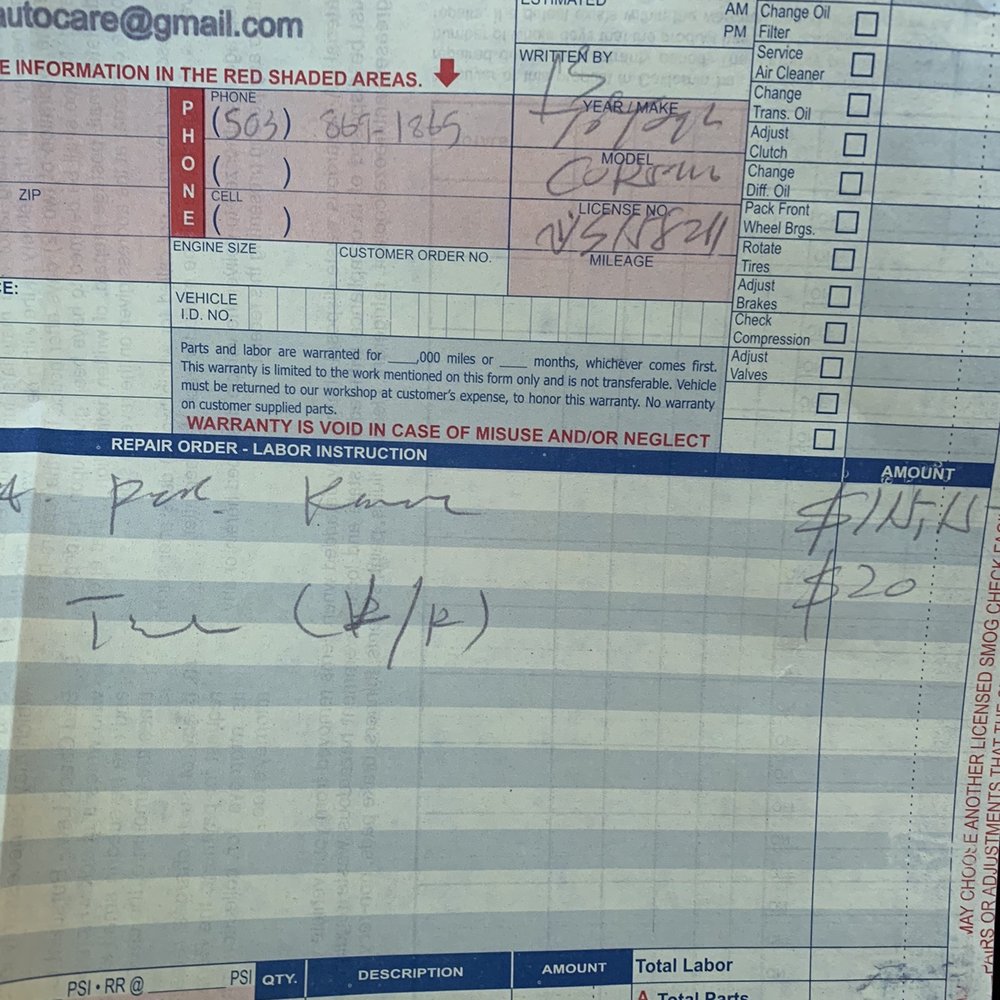 autocare@gmail.com
ESTIMATED
AM
PM
WRITTEN BY
E INFORMATION IN THE RED SHADED AREAS.
PHONE
PHONE
(503) 869-1865
YEAR / MAKE
MODEL
ZIP
CELL
LICENSE NO.
MILEAGE
ENGINE SIZE
CUSTOMER ORDER NO.
CE:
VEHICLE
I.D. NO.
Change Oil
Filter
Service
Air Cleaner
Change
Trans. Oil
Adjust
Clutch
Change
Diff. Oil
Pack Front
Wheel Brgs.
Rotate
Tires
Adjust
Brakes
Check
Compression
Adjust
Valves
Parts and labor are warranted for ____,000 miles or ____ months, whichever comes first.
This warranty is limited to the work mentioned on this form only and is not transferable. Vehicle
must be returned to our workshop at customer's expense, to honor this warranty. No warranty
on customer supplied parts.
WARRANTY IS VOID IN CASE OF MISUSE AND/OR NEGLECT
REPAIR ORDER - LABOR INSTRUCTION
AMOUNT
$20
(R/R)
MAY CHOOSE ANOTHER LICENSED SMOG CHECK FAC
PAIRS OR ADJUSTMENTS THAT THE
PSI • RR @ ______ PSI
QTY.
DESCRIPTION
AMOUNT
Total Labor
Total Parts